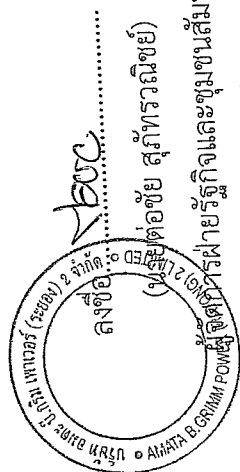 ลงชื่อ
(นายต่อชัย สุภัทรวณิชย์)
ผู้จัดการฝ่ายรัฐกิจและชุมชนสัม
บริษัท อมตะ บี.กริม เพาเวอร์ (ระยอง) 2 จำกัด
AMATA B.GRIMM POWER (RAYONG) 2 LIMITED